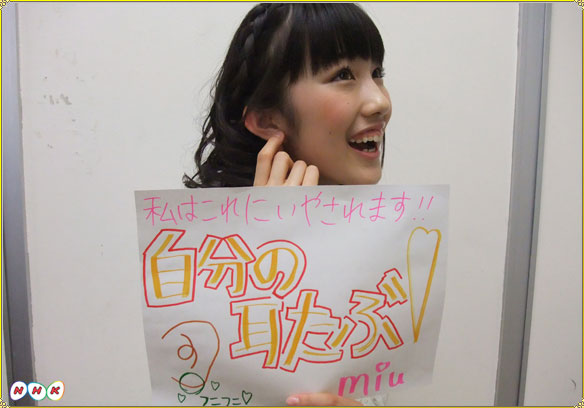 私はこれにいやされます!!
自分の
耳たぶ!
フニフニ♡
miu
NHK